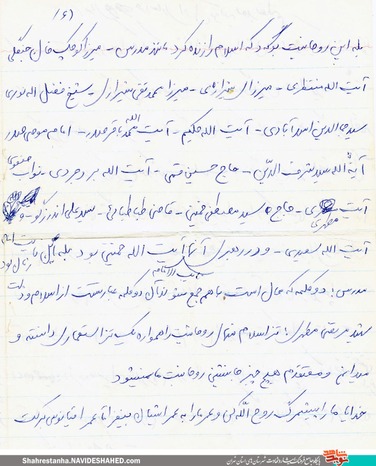 (۶)
بله این روحانیت بوده که اسلام را زنده کرد مانند مدرس - میرزا کوچک خان جنگلی
آیت الله منتظری - میرزای شیرازی - میرزا محمد تقی شیرازی - شیخ فضل اله نوری
سید جمال الدین اسدآبادی - آیت الله حکیم - آیت الله محمد باقر صدر - امام موسی صدر
آیة الله سید شرف الدین - حاج حسین قمی - آیت الله بروجردی - نواب صفوی
آیت مطهری - حاج سید مصطفی خمینی - قاضی طباطبائی - سید علی اندرزگو - و
آیت الله سعیدی - و در رهبری آنها آیت الله خمینی بود بله
مدرس: دو کلمه که حال است با هم جمع شوند آن دو کلمه عبارتست از اسلام و
شهید مرتضی مطهری: تز اسلام منهای روحانیت را همواره یک تز استعماری دانسته و
میدانم و معتقدم هیچ چیز جانشین روحانیت ما نمیشود
خدایا ما را بیشمرگ روح الله کن و عمر ما را به عمر ایشان بیفزا تا عمر اقیانوس برکت
Shahrestanha.NAVIDESHAHED.com